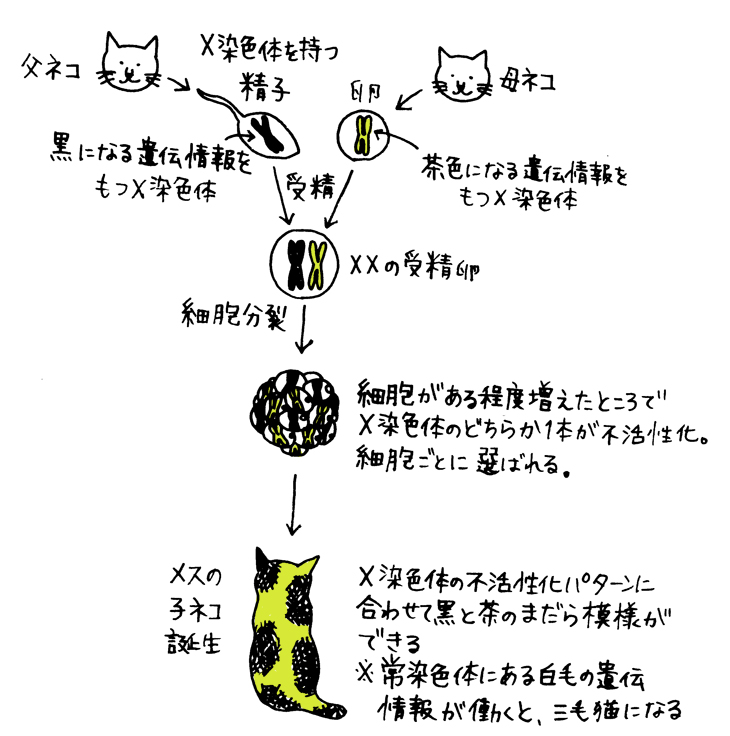 父ネコ
X染色体を持つ
精子
卵
母ネコ
黒になる遺伝情報を
もつX染色体
受精
茶色になる遺伝情報を
もつX染色体
XXの受精卵
細胞分裂
細胞がある程度増えたところで
X染色体のどちらか1本が不活性化。
細胞ごとに選ばれる。
メスの
子ネコ
誕生
X染色体の不活性化パターンに
合わせて黒と茶のまだら模様が
できる
※常染色体にある白毛の遺伝
情報が働くと、三毛猫になる